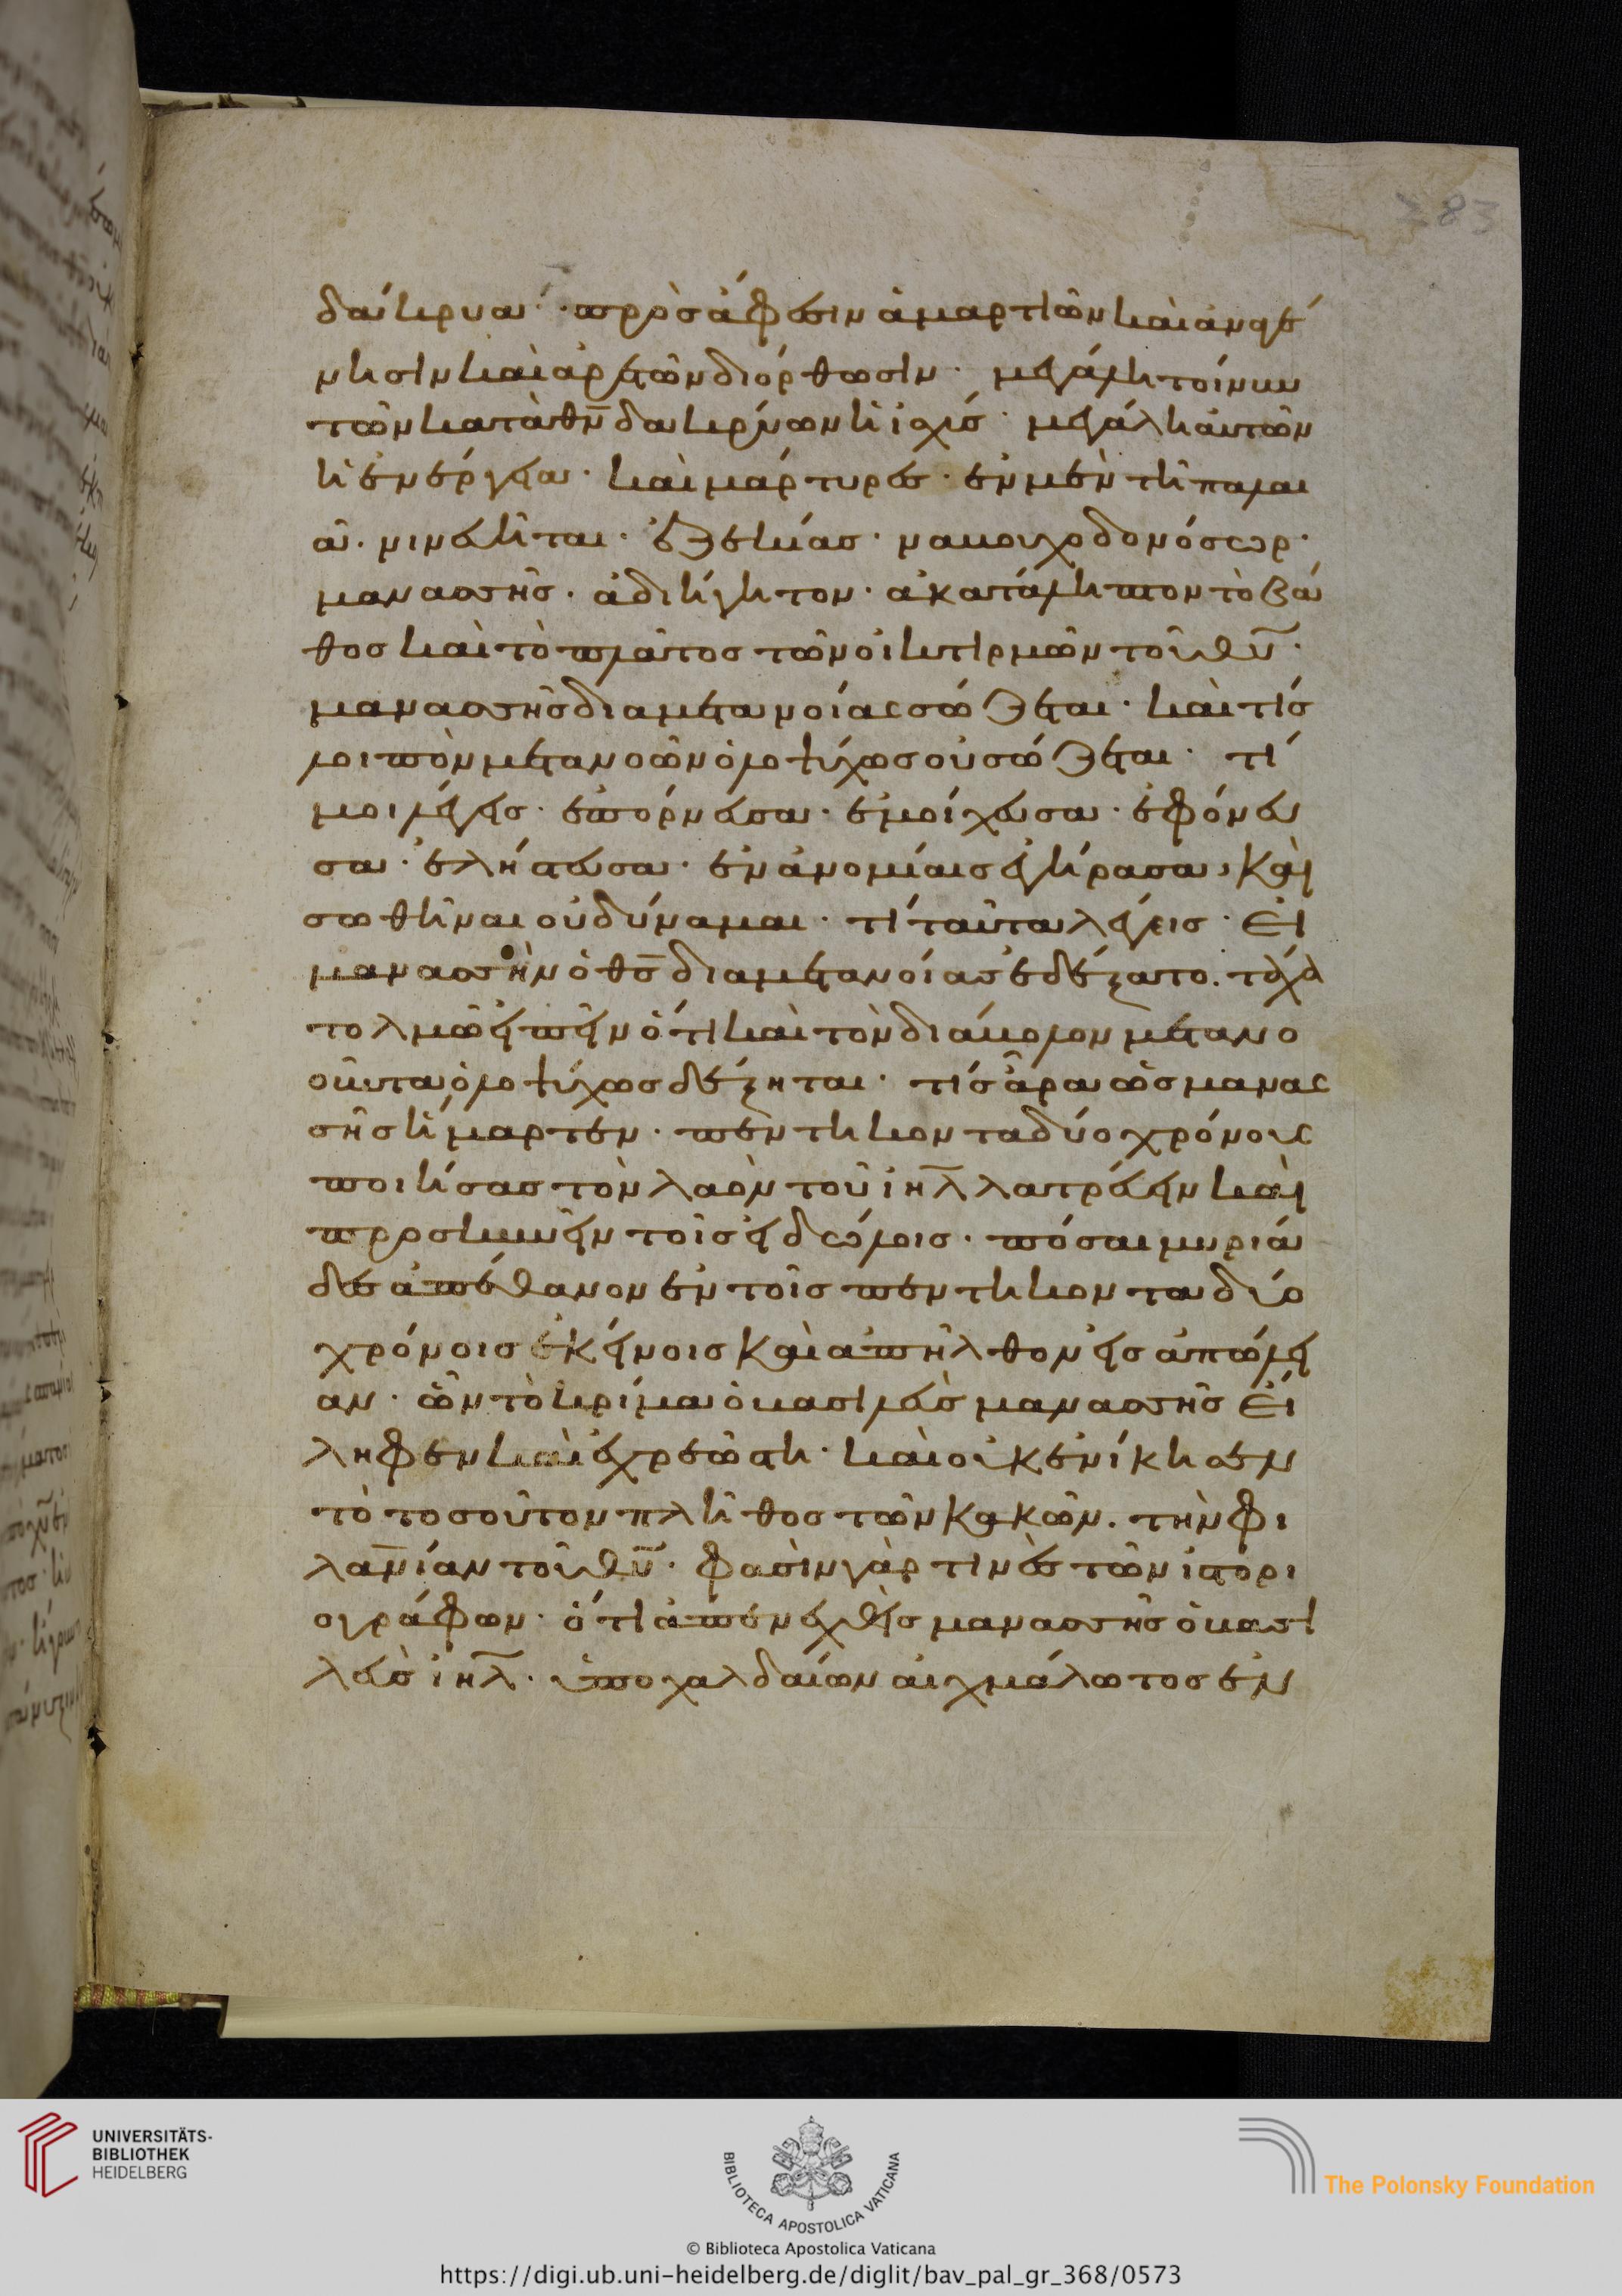 283
δάκρυα· πρὸς ἄφεσιν ἁμαρτιῶν καὶ ἀναγέ
νησιν καὶ ἀρετῶν διόρθωσιν· μεγάλη τοίνυν
τῶν κατὰ θν̅ δακρύων ἡ ἰσχύς· μεγάλη αὐτῶν
ἡ ἐνέργεια· καὶ μάρτυρες· ἐν μὲν τῆ παλαι
ᾶ· νινευῆται· ἐζεκίας· ναβουχοδονόσορ·
μανασσῆς· ἀδιήγητον· ἀκατάληπτον τὸ βά
θος καὶ τὸ πλάτος τῶν οἰκτιρμῶν τοῦ θυ̅·
μανασσῆς διὰ μετανοίας σώζεται· καὶ τίς
λοιπὸν μετανοῶν ὁλοψύχως οὐ σώζεται· τί
μοι λέγεις· ἐπόρνευσα· ἐμοίχευσα· ἐφόνευ
σα· ἐλήστευσα· ἐν ἀνομίαις ἐγήρασα, καὶ
σωθῆναι οὐ δύναμαι· τί ταῦτα λέγεις· Εἰ
μανασσὴν ὁ θς̅ διὰ μετανοίας ἐδέξατο· τάχα
τολμῶ εἰπεῖν ὅτι καὶ τὸν διάβολον μετανο
οῦντα ὁλοψύχως δέξηται· τίς ἄρα ὡς μανασ
σῆς ἥμαρτεν· πεντήκοντα δύο χρόνους
ποιήσας τὸν λαὸν τοῦ ιηλ̅ λατρεύειν καὶ
προσκυνεῖν τοῖς εἰδώλοις· πόσαι μυριά
δες ἀπέθανον ἐν τοῖς πεντήκοντα δύο
χρόνοις ἐκείνοις καὶ ἀπῆλθον εἰς ἀπώλει
αν· ὧν τὸ κρίμα ὁ βασιλεὺς μανασσῆς Εἴ
ληφεν καὶ ἐχρεώστη· καὶ οὐκ ἐνίκησεν
τὸ τοσοῦτον πλῆθος τῶν κακῶν· τὴν φι
λαν̅ίαν τοῦ θυ̅· φασὶν γάρ τινες τῶν ἱστορι
ογράφων· ὅτι ἀπενεχθεὶς μανασσῆς ὁ βασι
λεὺς ιηλ̅· ὑπὸ χαλδαίων αἰχμάλωτος ἐν
UNIVERSITÄTS-
BIBLIOTHEK
HEIDELBERG
BIBLIOTECA APOSTOLICA VATICANA
The Polonsky Foundation
© Biblioteca Apostolica Vaticana
https://digi.ub.uni-heidelberg.de/diglit/bav_pal_gr_368/0573